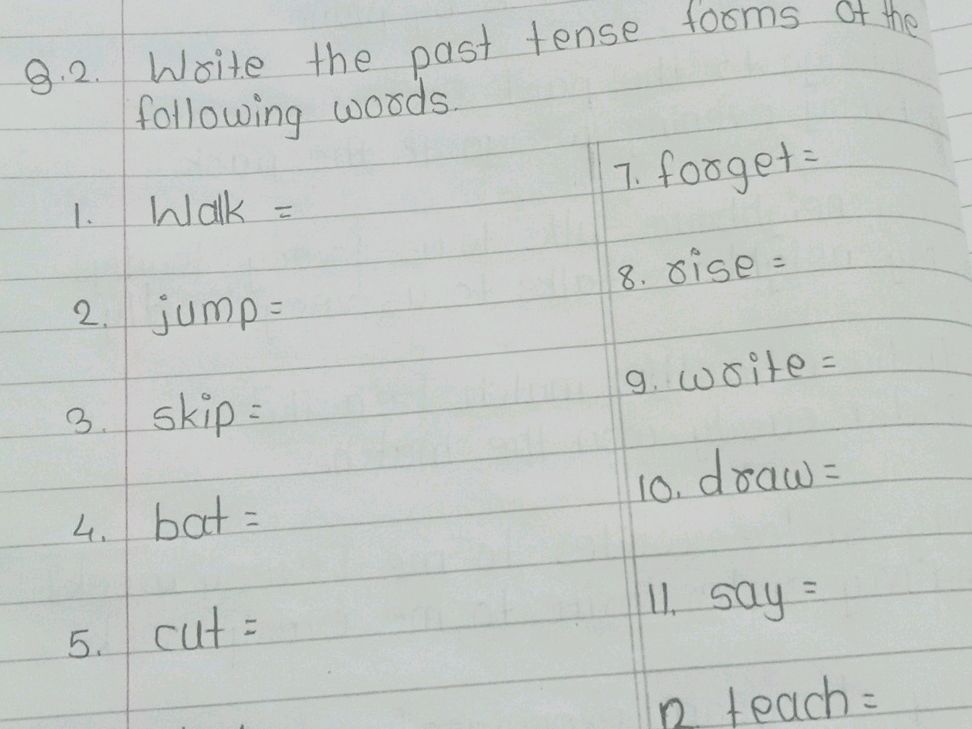 Q.2. Write the past tense forms of the
following words.
1. Walk =
2. jump =
3. skip =
4. bat =
5. cut =
7. forget =
8. rise =
9. write =
10. draw =
11. say =
12. teach =